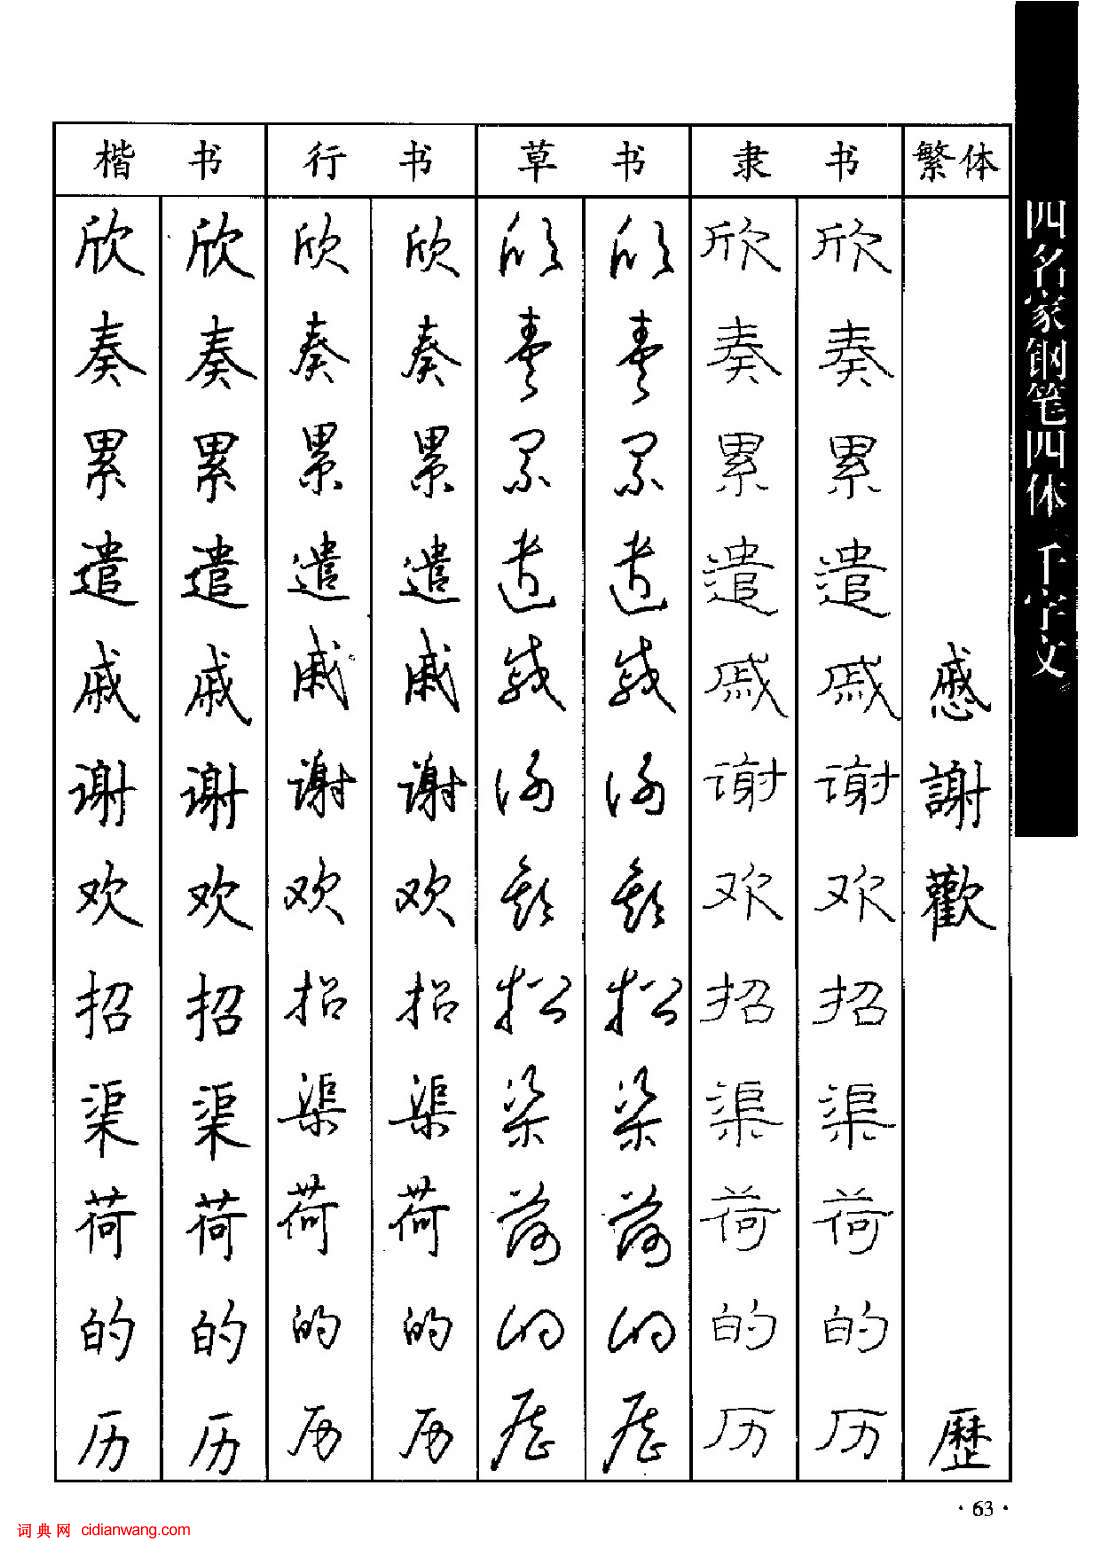 楷 书 行 书 草 书 隶 书 繁体
欣 欣 欣 欣 欣 欣 欣 欣
奏 奏 奏 奏 奏 奏 奏 奏
累 累 累 累 累 累 累 累
遣 遣 遣 遣 遣 遣 遣 遣
戚 戚 戚 戚 戚 戚 戚 戚 慼
谢 谢 谢 谢 谢 谢 谢 谢 謝
欢 欢 欢 欢 欢 欢 欢 欢 歡
招 招 招 招 招 招 招 招
渠 渠 渠 渠 渠 渠 渠 渠
荷 荷 荷 荷 荷 荷 荷 荷
的 的 的 的 的 的 的 的
历 历 历 历 历 历 历 历 歷
四名家钢笔四体千字文
·63·
词典网 cidianwang.com